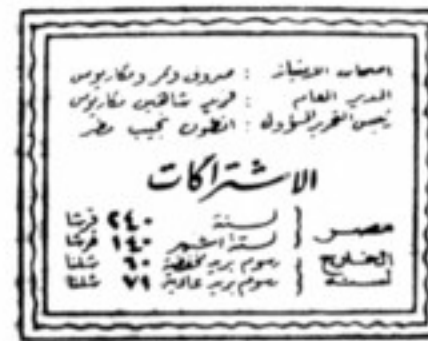 اصحاب الامتياز : صروف ونمر ومكاريوس
المدير العام : فريد شاهين مكاريوس
رئيس التحرير المسؤول : انطون نجيب مطر
الاشتراكات
مصر { لسنة ٢٤٠ قرشا
لستة اشهر ١٤٠ قرشا
الخارج لسنة { رسوم بريد مخفضة ٦٠ شلنا
رسوم بريد عادية ٧٩ شلنا